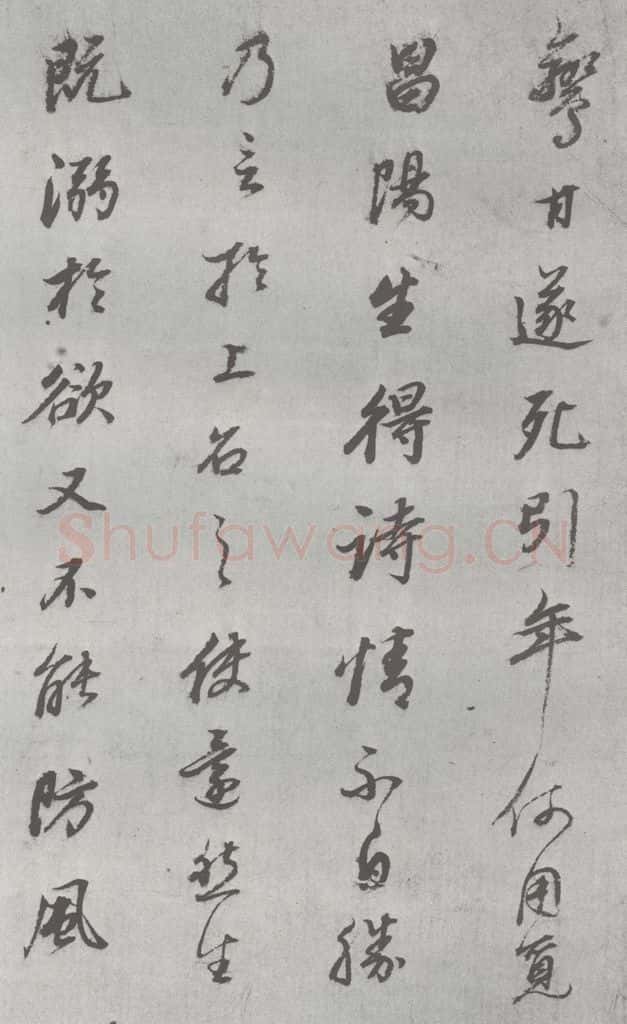 甘遂死引年何用覓
昌陽生得詩情不自勝
乃言於上召之使還然生
既溺於欲又不能防風
Shufawang.CN